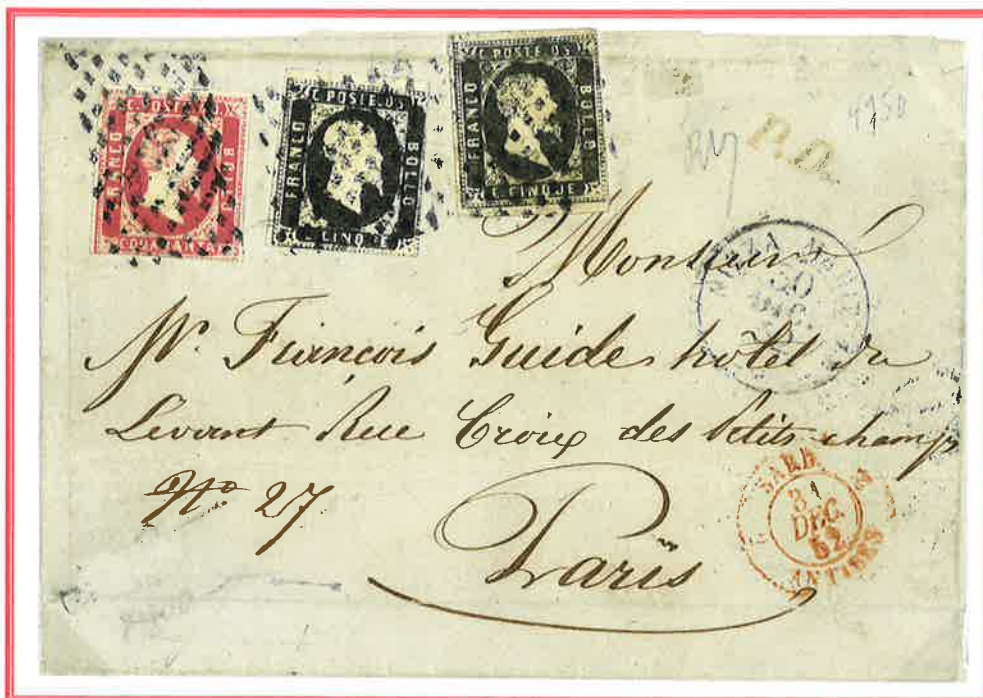 C. POSTE.
FRANCO
BOLLO
C. QUARANTA
C. POSTE. 05
FRANCO
BOLLO
C. CINQUE
C. POSTE. 05
FRANCO
BOLLO
C. CINQUE
P.D.
NIZZA MARITT.
30
DIC.
Monsieur
Mr. Francois Guide hotel du
Levant Rue Croix des Petits champs
No 27
Paris
SARD.
31
DEC.
52
ANTIBES